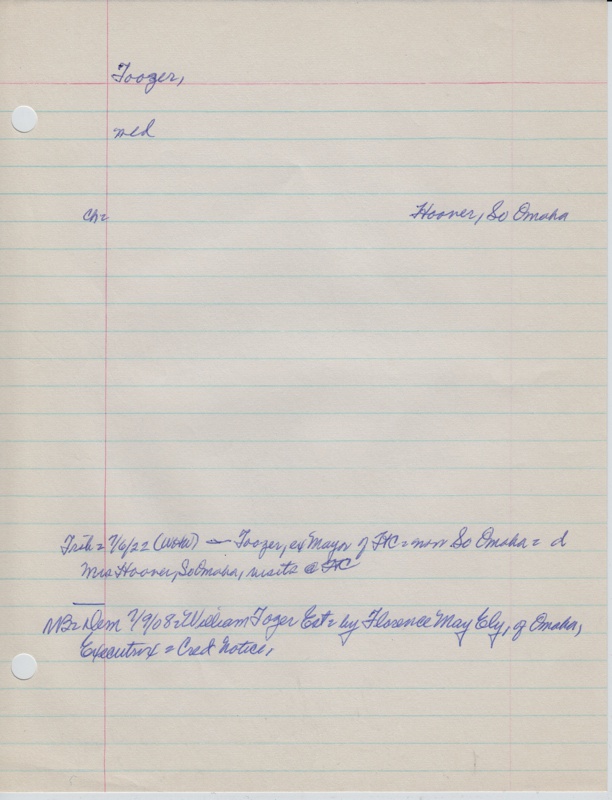 Toozer,
med
Ch=
Hoover, So Omaha
Trib= 7/6/22 (WHW) — Toozer, ex Mayor of FC = now So Omaha = d
Mrs Hoover, So Omaha, visits @ FC
NB= Dem 7/9/08 = William Tozer Est = by Florence May Ely, of Omaha,
Executrix = Cred Notice,